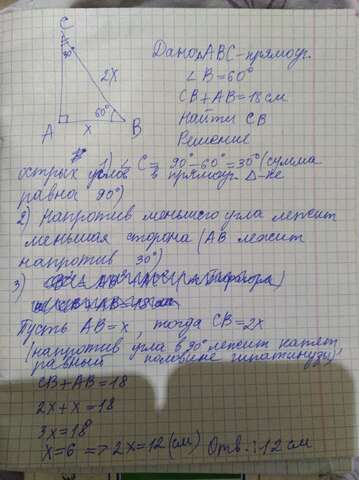 C
30°
2x
60°
A
x
B
Дано △ABC - прямоуг.
∠B = 60°
CB + AB = 18 см
Найти CB
Решение
1) ∠C = 90° - 60° = 30° (сумма
острых углов в прямоуг. △-ке
равна 90°)
2) Напротив меньшего угла лежит
меньшая сторона (AB лежит
напротив 30°)
3)
Пусть AB = x, тогда CB = 2x
(напротив угла в 30° лежит катет
равный половине гипатинузы)
CB + AB = 18
2x + x = 18
3x = 18
x = 6 => 2x = 12 (см) Отв.: 12 см